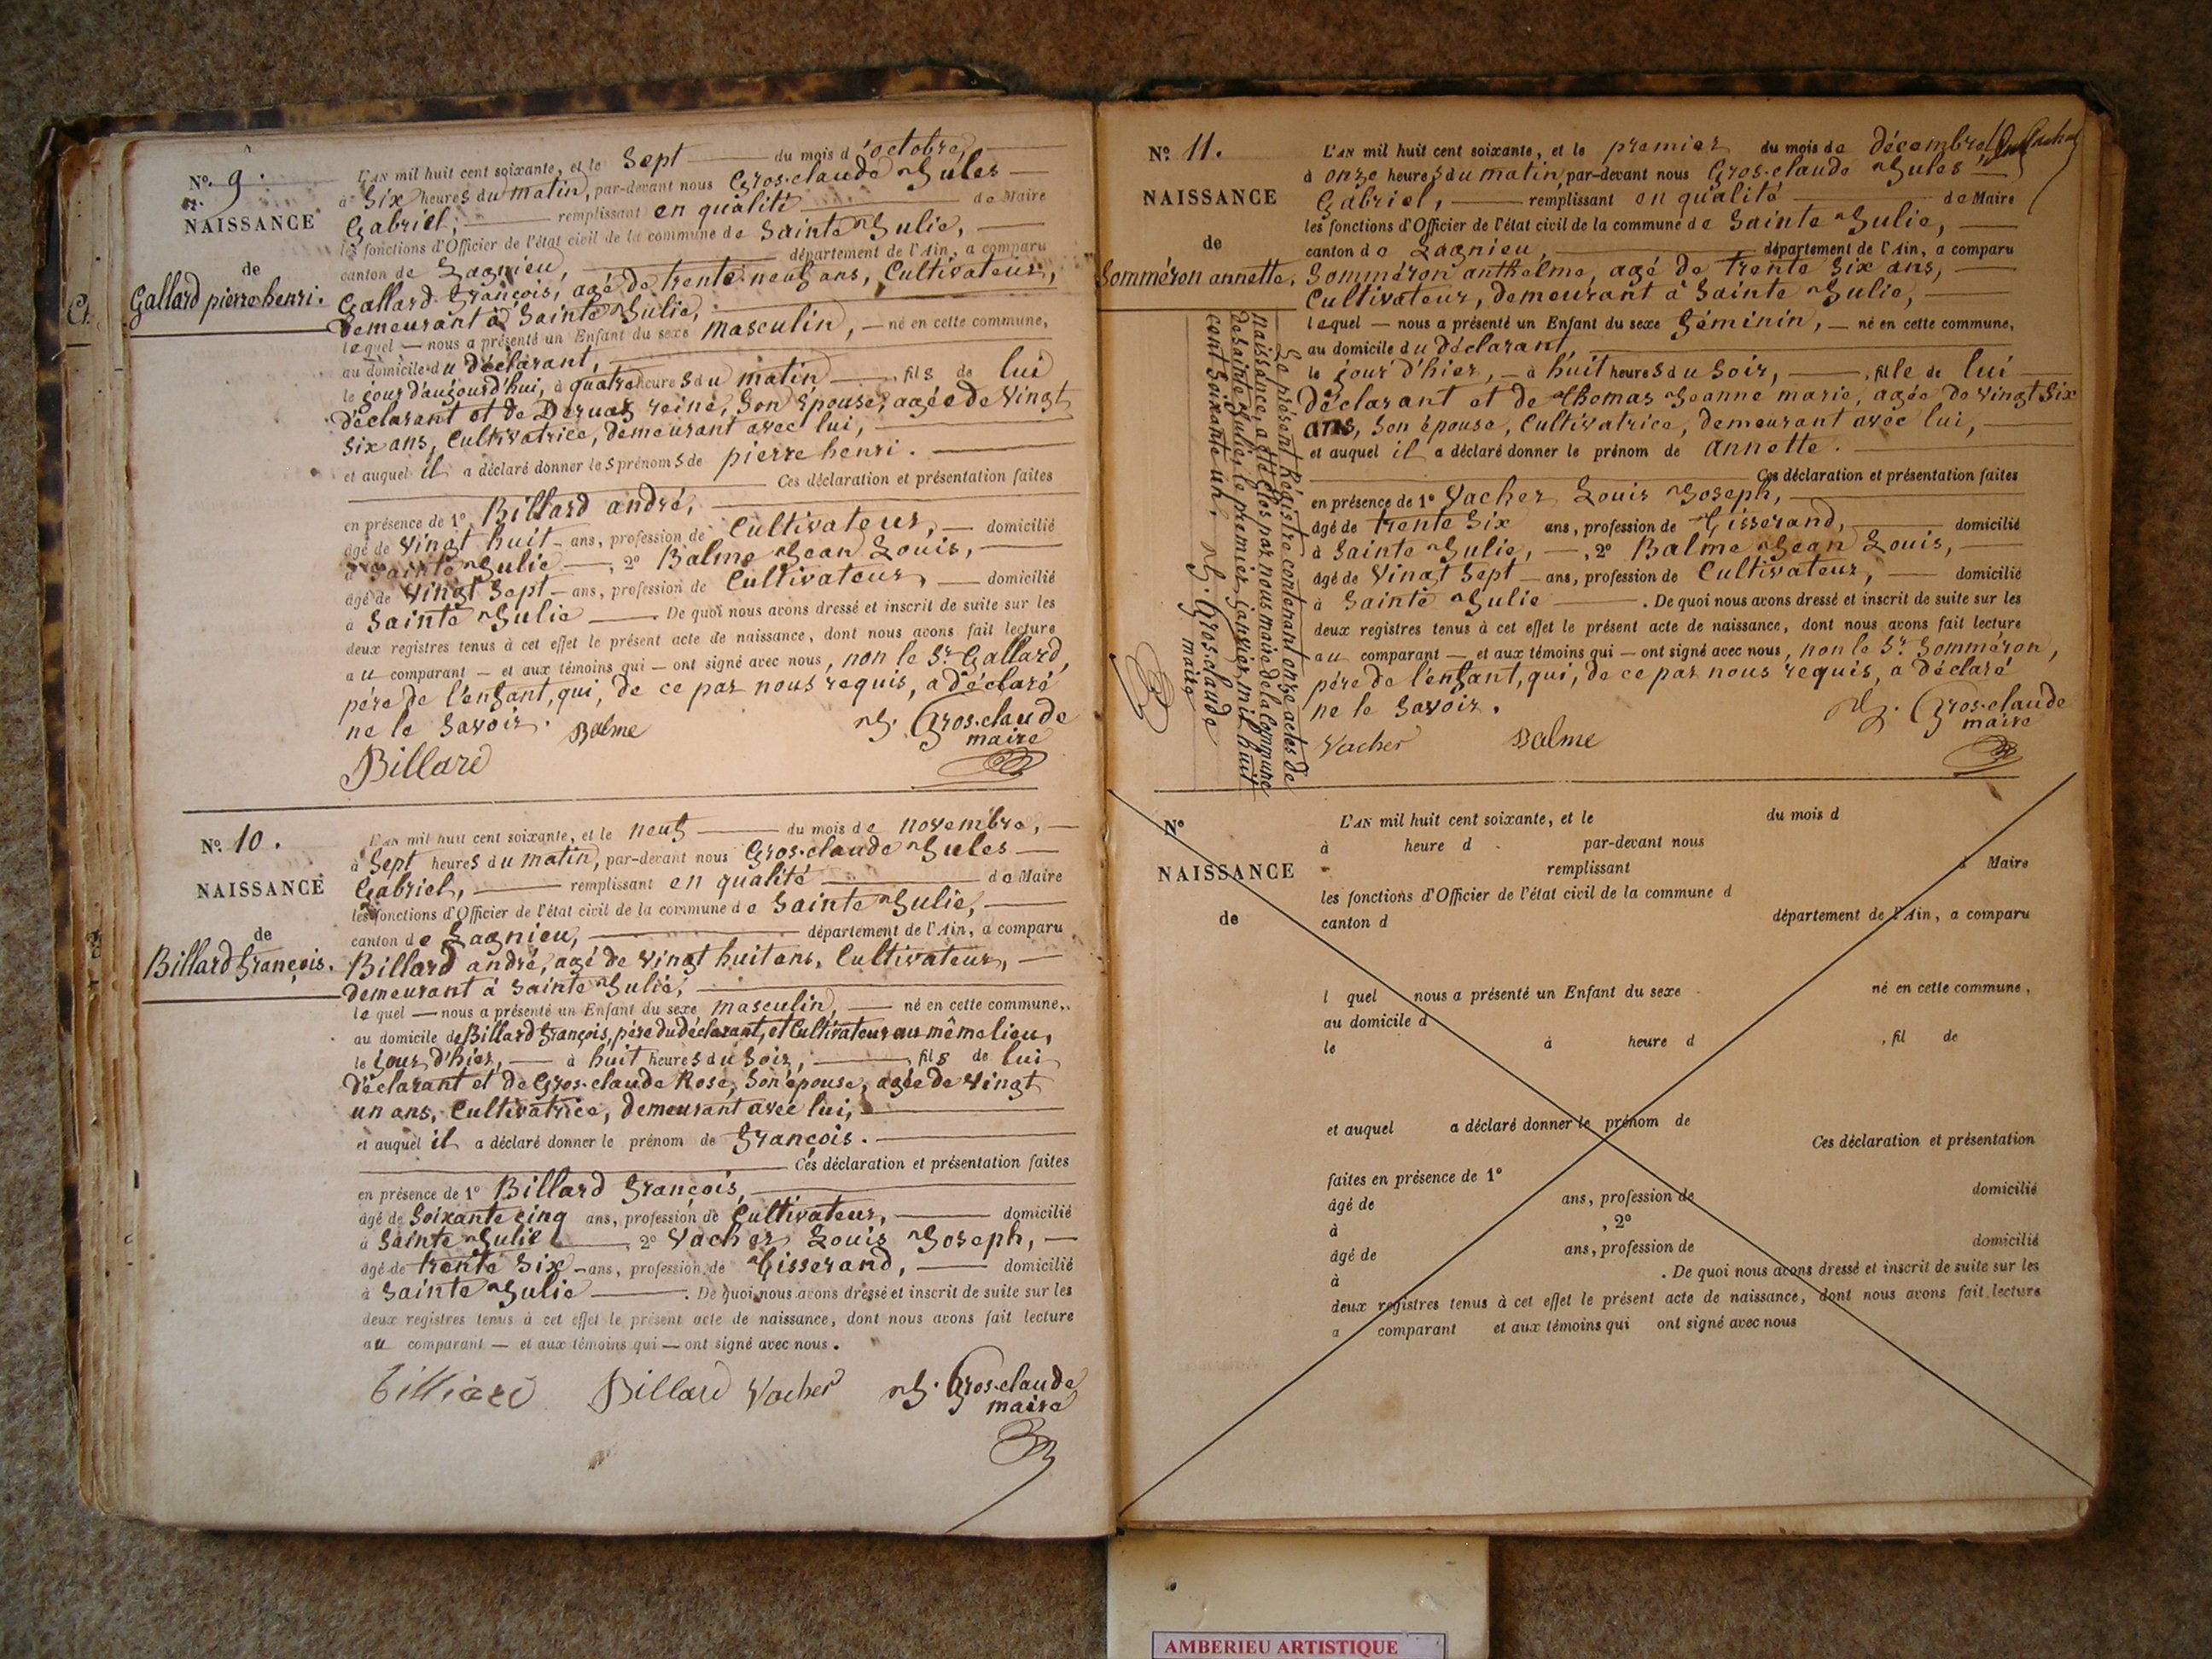 N° 9.
NAISSANCE
de
Gallard pierre henri.
L'AN mil huit cent soixante, et le Sept du mois d'octobre,
à Six heures du matin, par-devant nous Gros-claude Jules
Gabriel, remplissant en qualité de Maire
les fonctions d'Officier de l'état civil de la commune de Sainte Julie,
canton de Lagnieu, département de l'Ain, a comparu
Gallard françois, agé de trente-neuf ans, Cultivateur,
demeurant à Sainte Julie,
lequel — nous a présenté un Enfant du sexe masculin, — né en cette commune,
au domicile du déclarant,
le jour d'aujourd'hui, à quatre heures du matin, fils de lui
déclarant et de reine, son épouse, agée de vingt
six ans, Cultivatrice, demeurant avec lui,
et auquel il a déclaré donner les prénoms de pierre henri.
Ces déclaration et présentation faites
en présence de 1° Billard andré,
âgé de vingt huit ans, profession de Cultivateur, — domicilié
à Sainte Julie —, 2° Balme Jean Louis,
âgé de vingt Sept — ans, profession de Cultivateur, — domicilié
à Sainte Julie. De quoi nous avons dressé et inscrit de suite sur les
deux registres tenus à cet effet le présent acte de naissance, dont nous avons fait lecture
au comparant — et aux témoins qui — ont signé avec nous, non le Sr Gallard,
père de l'enfant, qui, de ce par nous requis, a déclaré
ne le savoir.
Balme
J. Gros-claude
maire
Billard
N° 10.
NAISSANCE
de
Billard françois.
L'AN mil huit cent soixante, et le neuf du mois de novembre,
à Sept heures du matin, par-devant nous Gros-claude Jules
Gabriel, remplissant en qualité de Maire
les fonctions d'Officier de l'état civil de la commune de Sainte Julie,
canton de Lagnieu, département de l'Ain, a comparu
Billard andré, agé de vingt huit ans, Cultivateur,
demeurant à Sainte Julie,
lequel — nous a présenté un Enfant du sexe masculin, — né en cette commune,
au domicile de Billard françois, père du déclarant, et Cultivateur au même lieu,
le jour d'hier, — à huit heures du soir, fils de lui
déclarant et de Gros-claude Rose, son épouse, agée de vingt
un ans, Cultivatrice, demeurant avec lui,
et auquel il a déclaré donner le prénom de françois.
Ces déclaration et présentation faites
en présence de 1° Billard françois,
âgé de Soixante cinq ans, profession de Cultivateur, domicilié
à Sainte Julie, 2° Vacher Louis Joseph,
âgé de trente Six — ans, profession de Tisserand, — domicilié
à Sainte Julie. De quoi nous avons dressé et inscrit de suite sur les
deux registres tenus à cet effet le présent acte de naissance, dont nous avons fait lecture
au comparant — et aux témoins qui — ont signé avec nous.
Billard Vacher J. Gros-claude
maire
N° 11.
NAISSANCE
de
Somméron annette.
L'AN mil huit cent soixante, et le premier du mois de décembre,
à onze heures du matin, par-devant nous Gros-claude Jules
Gabriel, remplissant en qualité de Maire
les fonctions d'Officier de l'état civil de la commune de Sainte Julie,
canton de Lagnieu, département de l'Ain, a comparu
Somméron anthelme, agé de trente Six ans,
Cultivateur, demeurant à Sainte Julie,
lequel — nous a présenté un Enfant du sexe féminin, — né en cette commune,
au domicile du déclarant,
le jour d'hier, — à huit heures du soir, fille de lui
déclarant et de Thomas Jeanne marie, agée de vingt Six
ans, son épouse, Cultivatrice, demeurant avec lui,
et auquel il a déclaré donner le prénom de annette.
Ces déclaration et présentation faites
en présence de 1° Vacher Louis Joseph,
âgé de trente Six ans, profession de Tisserand, domicilié
à Sainte Julie, —, 2° Balme Jean Louis,
âgé de vingt Sept — ans, profession de Cultivateur, — domicilié
à Sainte Julie. De quoi nous avons dressé et inscrit de suite sur les
deux registres tenus à cet effet le présent acte de naissance, dont nous avons fait lecture
au comparant — et aux témoins qui — ont signé avec nous, non le Sr Somméron,
père de l'enfant, qui, de ce par nous requis, a déclaré
ne le savoir.
J. Gros-claude
maire
Vacher Balme
Le présent Régistre contenant onze actes de
naissance, a été clos par nous maire de la Commune
de Sainte Julie, le premier janvier mil huit
cent Soixante un.
J. Gros-claude
maire
N°
NAISSANCE
de
L'AN mil huit cent soixante, et le du mois d
à heure d par-devant nous
remplissant d Maire
les fonctions d'Officier de l'état civil de la commune d
canton d département de l'Ain, a comparu
l quel nous a présenté un Enfant du sexe né en cette commune,
au domicile d
le à heure d , fil de
et auquel a déclaré donner le prénom de
Ces déclaration et présentation
faites en présence de 1°
âgé de ans, profession de domicilié
à , 2°
âgé de ans, profession de domicilié
à . De quoi nous avons dressé et inscrit de suite sur les
deux registres tenus à cet effet le présent acte de naissance, dont nous avons fait lecture
a comparant et aux témoins qui ont signé avec nous
AMBERIEU ARTISTIQUE